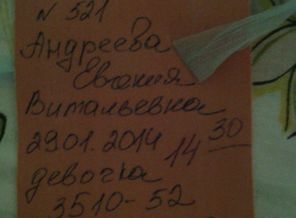 N 521
Андреева
Евгения
Витальевна
29.01.2014 14 30
девочка
3510-52